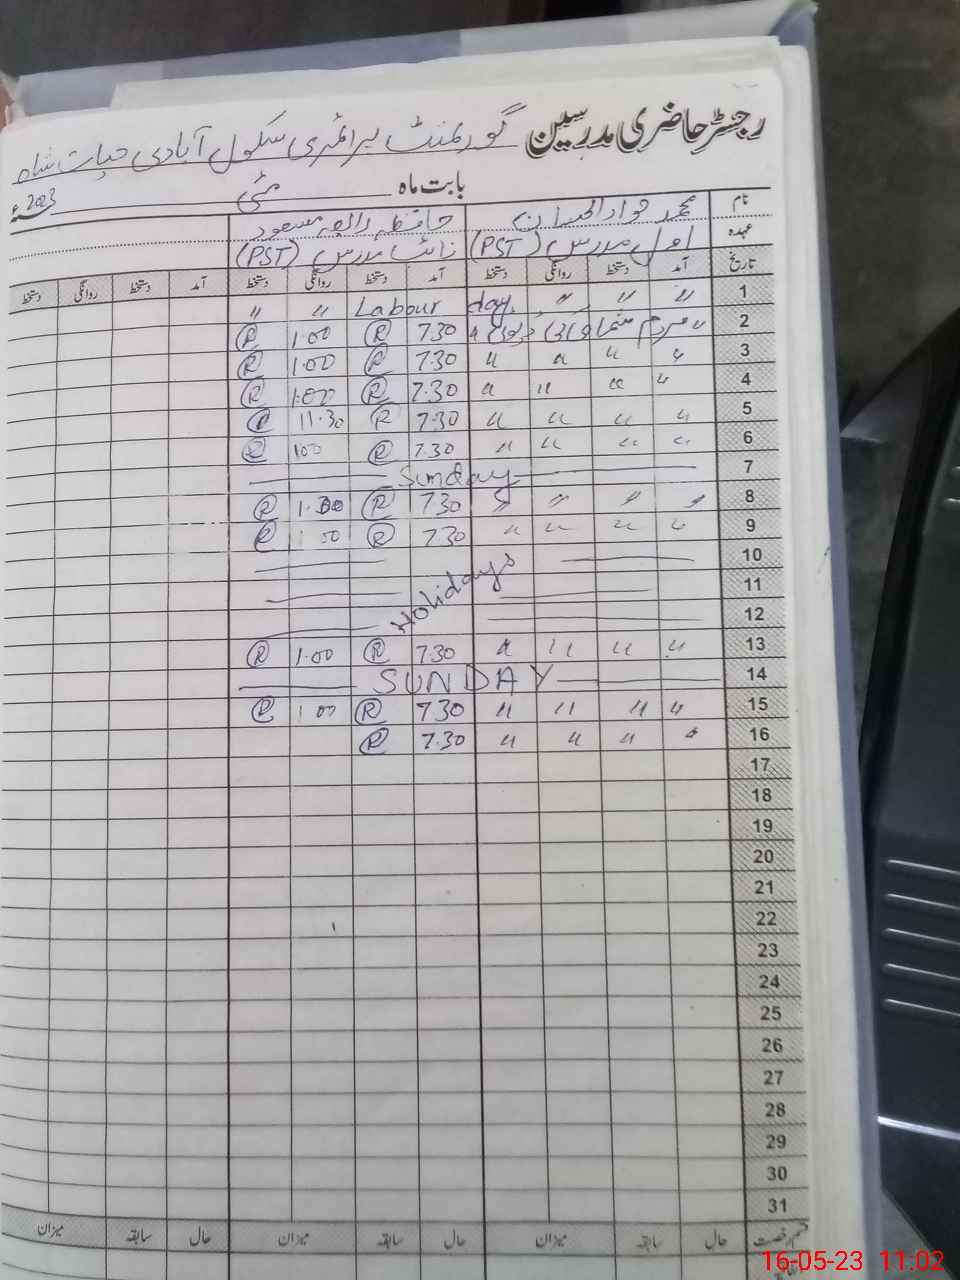 رجسٹر حاضری مدرسین گورنمنٹ پرائمری سکول آبادی حیات شاہ
بابت ماہ مئی 2023ء
نام محمد جواد الحسان حافظہ رابعہ مسعود
عہدہ اول مدرس (PST) نائب مدرس (PST)
تاریخ آمد دستخط روانگی دستخط آمد دستخط روانگی دستخط آمد دستخط روانگی دستخط
1 〃 〃 〃 Labour day. 〃 〃
2 〃 مردم شماری ڈیوٹی 〃 7.30 R 1.00 R
3 〃 〃 〃 〃 7.30 R 1.00 R
4 〃 〃 〃 〃 7.30 R 1.00 R
5 〃 〃 〃 〃 7.30 R 11.30 R
6 〃 〃 〃 〃 7.30 R 100 R
7 Sunday
8 〃 〃 〃 〃 730 R R
9 〃 〃 〃 〃 7.30 R 1 00 R
10
11 Holidays
12
13 〃 〃 〃 〃 730 R 1.00 R
14 SUNDAY
15 〃 〃 〃 〃 730 R 1 00 R
16 〃 〃 〃 〃 7.30 R
17
18
19
20
21
22
23
24
25
26
27
28
29
30
31
قسم رخصت حال سابقہ میزان حال سابقہ میزان حال سابقہ میزان
16-05-23 11:02